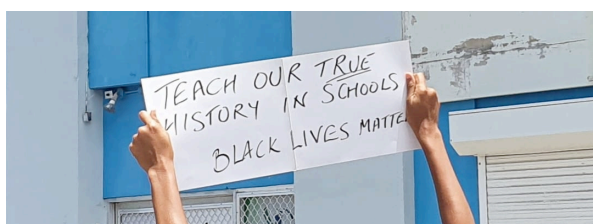 TEACH OUR TRUE
HISTORY IN SCHOOLS
BLACK LIVES MATTE